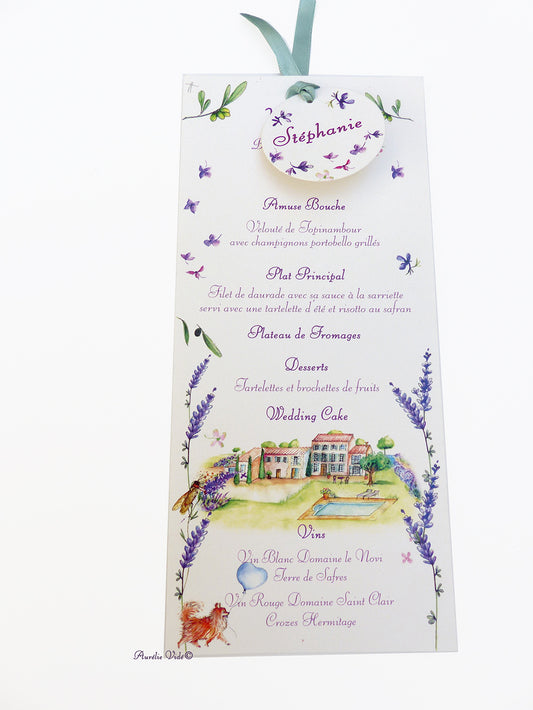 Stéphanie
Amuse Bouche
Velouté de Topinambour
avec champignons portobello grillés
Plat Principal
Filet de daurade avec sa sauce à la sarriette
servi avec une tartelette d'été et risotto au safran
Plateau de Fromages
Desserts
Tartelettes et brochettes de fruits
Wedding Cake
Vins
Vin Blanc Domaine le Novi
Terre de Safres
Vin Rouge Domaine Saint Clair
Crozes Hermitage
Aurélie Vidé©